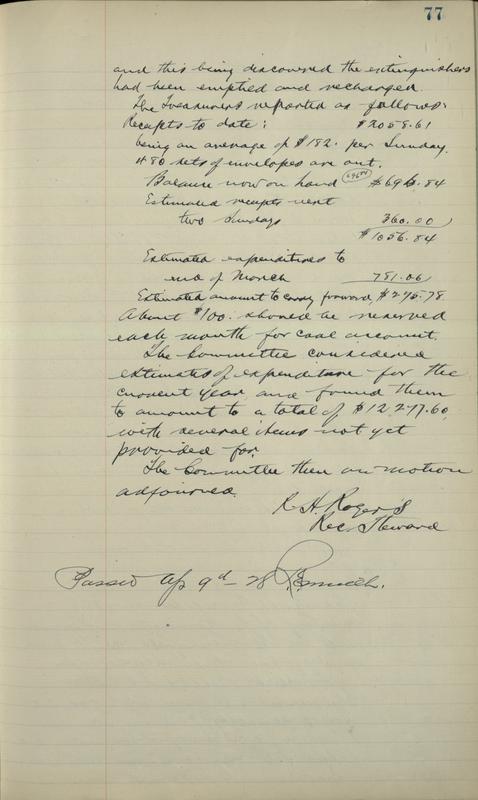 77
and this being discovered the extinguishers
had been emptied and recharged.
The Treasurers reported as follows:
Receipts to date: $2058.61
being an average of $182. per Sunday.
480 sets of envelopes are out.
Balance now on hand 696.84 $696.84
Estimated receipts next
two Sundays 360.00
$1056.84
Estimated expenditures to
end of March 781.06
Estimated amount to carry forward, $275.78
About $100. should be reserved
each month for coal account.
The Committee considered
estimates of expenditure for the
current year and found them
to amount to a total of $12,277.60,
with several items not yet
provided for.
The Committee then on motion
adjourned.
R. H. Rogers
Rec. Steward
Passed Ap 9d - 28